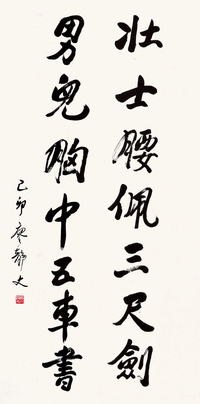 壮士腰佩三尺劍
男兒胸中五車書
己卯廖静文